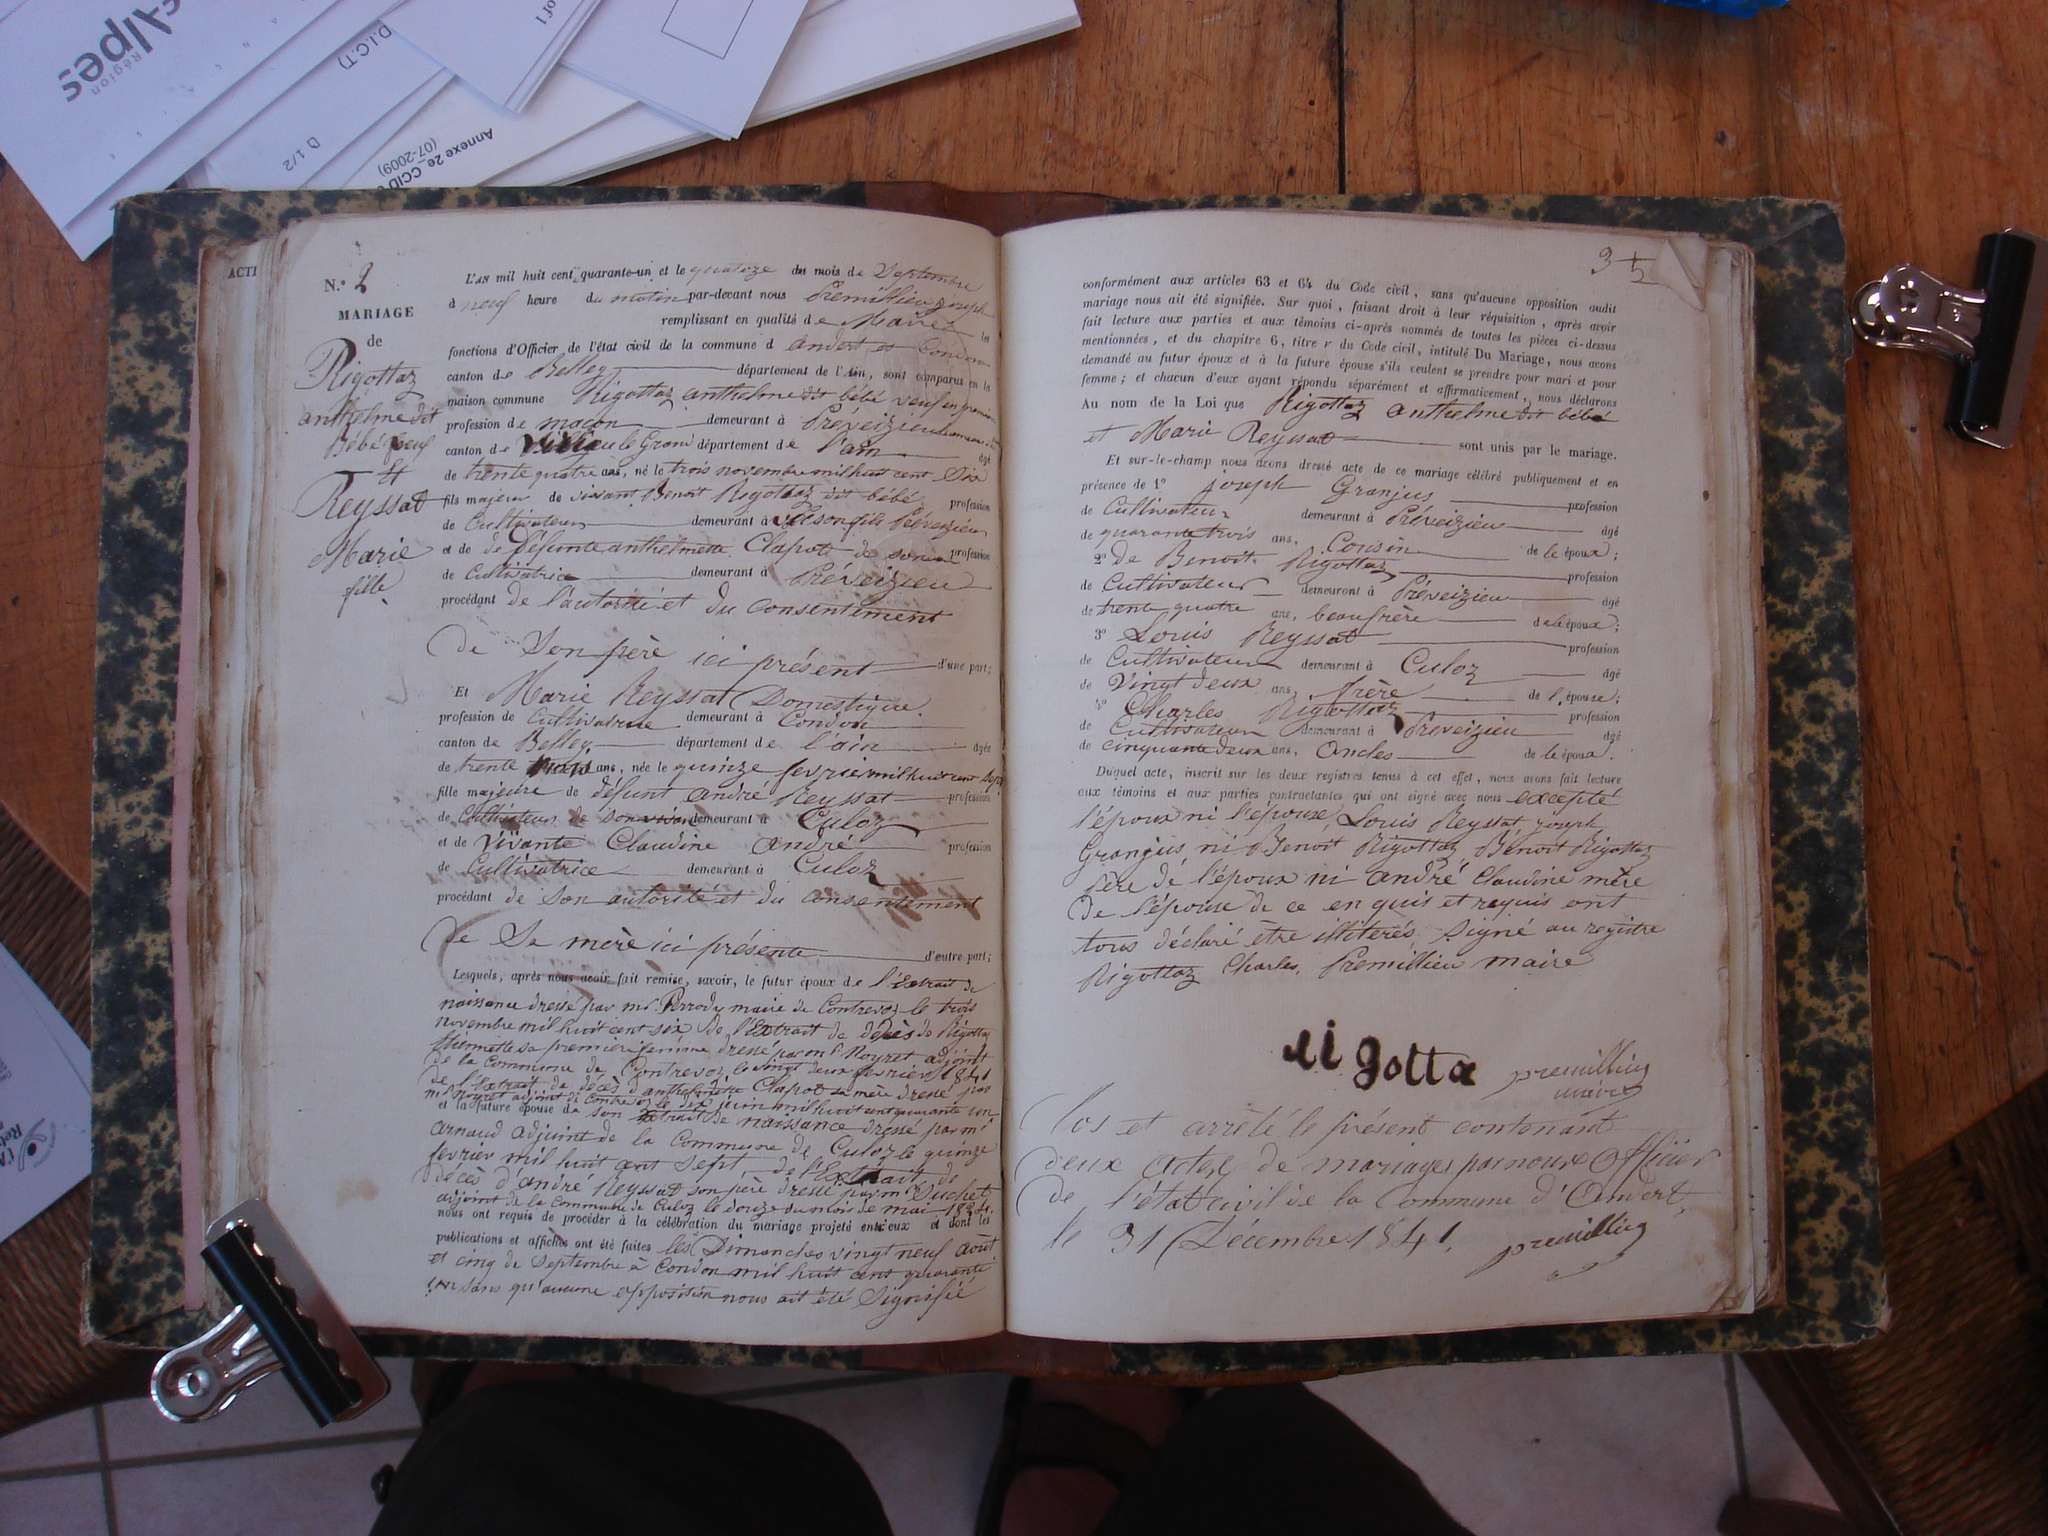 Alpes
Région
D.I.C.T)
of 1
D 1/2
Annexe 2e_CCID
(07-2009)
ACTI
N.° 2
MARIAGE
de
Rigottaz
anthelme dit
Bébé veuf
et
Reyssat
Marie
fille
L'AN mil huit cent quarante-un et le quatoze du mois de Septembre
à neuf heure du matin par-devant nous Premillieu joseph
remplissant en qualité de Maire les
fonctions d'Officier de l'état civil de la commune d andert et Condon
canton de Belley département de l'Ain, sont comparus en la
maison commune Rigottaz anthelme dit bébé veuf en premier
profession de maçon demeurant à Préveizieu
canton de Virieu le Grand département de l'ain âgé
de trente quatre ans, né le trois novembre mil huit cent Six
fils majeur de vivant Benoit Rigottaz dit bébé profession
de Cultivateur demeurant à son fils Préveizieu
et de Défunte anthelmette Clapot de son profession
de Cultivatrice demeurant à Préveizieu
procédant de l'autorité et du consentement
de Son père ici présent d'une part;
Et Marie Reyssat Domestique
profession de Cultivatrice demeurant à Condon
canton de Belley département de l'ain âgée
de trente trois ans, née le quinze fevrier mil huit cent sept
fille majeure de défunt andré Reyssat profession
de Cultivateur de son demeurant à Culoz
et de Vivante Claudine andré profession
de Cultivatrice demeurant à Culoz
procédant de son autorité et du consentement
de Sa mère ici présente d'autre part;
Lesquels, après nous avoir fait remise, savoir, le futur époux de l'Extrait de
naissance dressé par mr Perrody maire de Contrevoz le trois
novembre mil huit cent six de l'Extrait de décès de Rigottaz
thimette sa premiere femme dressé par mr Noyret adjoint
de la Commune de Contrevoz le vingt deux fevrier 1841
de l'Extrait de décès d'anthelmette Clapot sa mère dressé par
mr Noyret adjoint de Contrevoz le dix juin mil huit cent quarante un
et la future épouse de son Extrait de naissance dressé par mr
arnaud adjoint de la Commune de Culoz le quinze
fevrier mil huit cent sept, de l'Extrait de
décès d'andré Reyssat son père dressé par mr Suchet
adjoint de la Commune de Culoz le douze du mois de mai 1824.
nous ont requis de procéder à la célébration du mariage projeté entre eux et dont les
publications et affiches ont été faites les Dimanches vingt neuf août
et cinq de Septembre à Condon mil huit cent quarante
un sans qu'aucune opposition nous ait été Signifiée
35
conformément aux articles 63 et 64 du Code civil, sans qu'aucune opposition audit
mariage nous ait été signifiée. Sur quoi, faisant droit à leur réquisition, après avoir
fait lecture aux parties et aux témoins ci-après nommés de toutes les pièces ci-dessus
mentionnées, et du chapitre 6, titre v du Code civil, intitulé Du Mariage, nous avons
demandé au futur époux et à la future épouse s'ils veulent se prendre pour mari et pour
femme; et chacun d'eux ayant répondu séparément et affirmativement, nous déclarons
Au nom de la Loi que Rigottaz anthelme dit bébé
et Marie Reyssat sont unis par le mariage.
Et sur-le-champ nous avons dressé acte de ce mariage célébré publiquement et en
présence de 1° joseph Granjus profession
de Cultivateur demeurant à Préveizieu âgé
de quarante trois ans, Cousin de le époux;
2° de Benoit Rigottaz profession
de Cultivateur demeurant à Préveizieu âgé
de trente quatre ans, beaufrère de le époux;
3° Louis Reyssat profession
de Cultivateur demeurant à Culoz âgé
de Vingt deux ans, frère de l'épouse;
4° Charles Rigottaz profession
de Cultivateur demeurant à Preveizieu âgé
de cinquante deux ans, Oncles de le époux.
Duquel acte, inscrit sur les deux registres tenus à cet effet, nous avons fait lecture
aux témoins et aux parties contractantes qui ont signé avec nous excepté
l'époux ni l'épouse, Louis Reyssat joseph
Granjus ni Benoit Rigottaz Benoit Rigottaz
père de l'époux ni andré Claudine mère
de l'épouse de ce en quis et requis ont
tous déclaré être illiterés, Signé au registre
Rigottaz Charles, Premillieu maire
rigotta
premillieu
maire
Clos et arrêté le présent contenant
deux actes de mariages par nous Officier
de l'état civil de la Commune d'Andert,
le 31 Décembre 1841.
premillieu